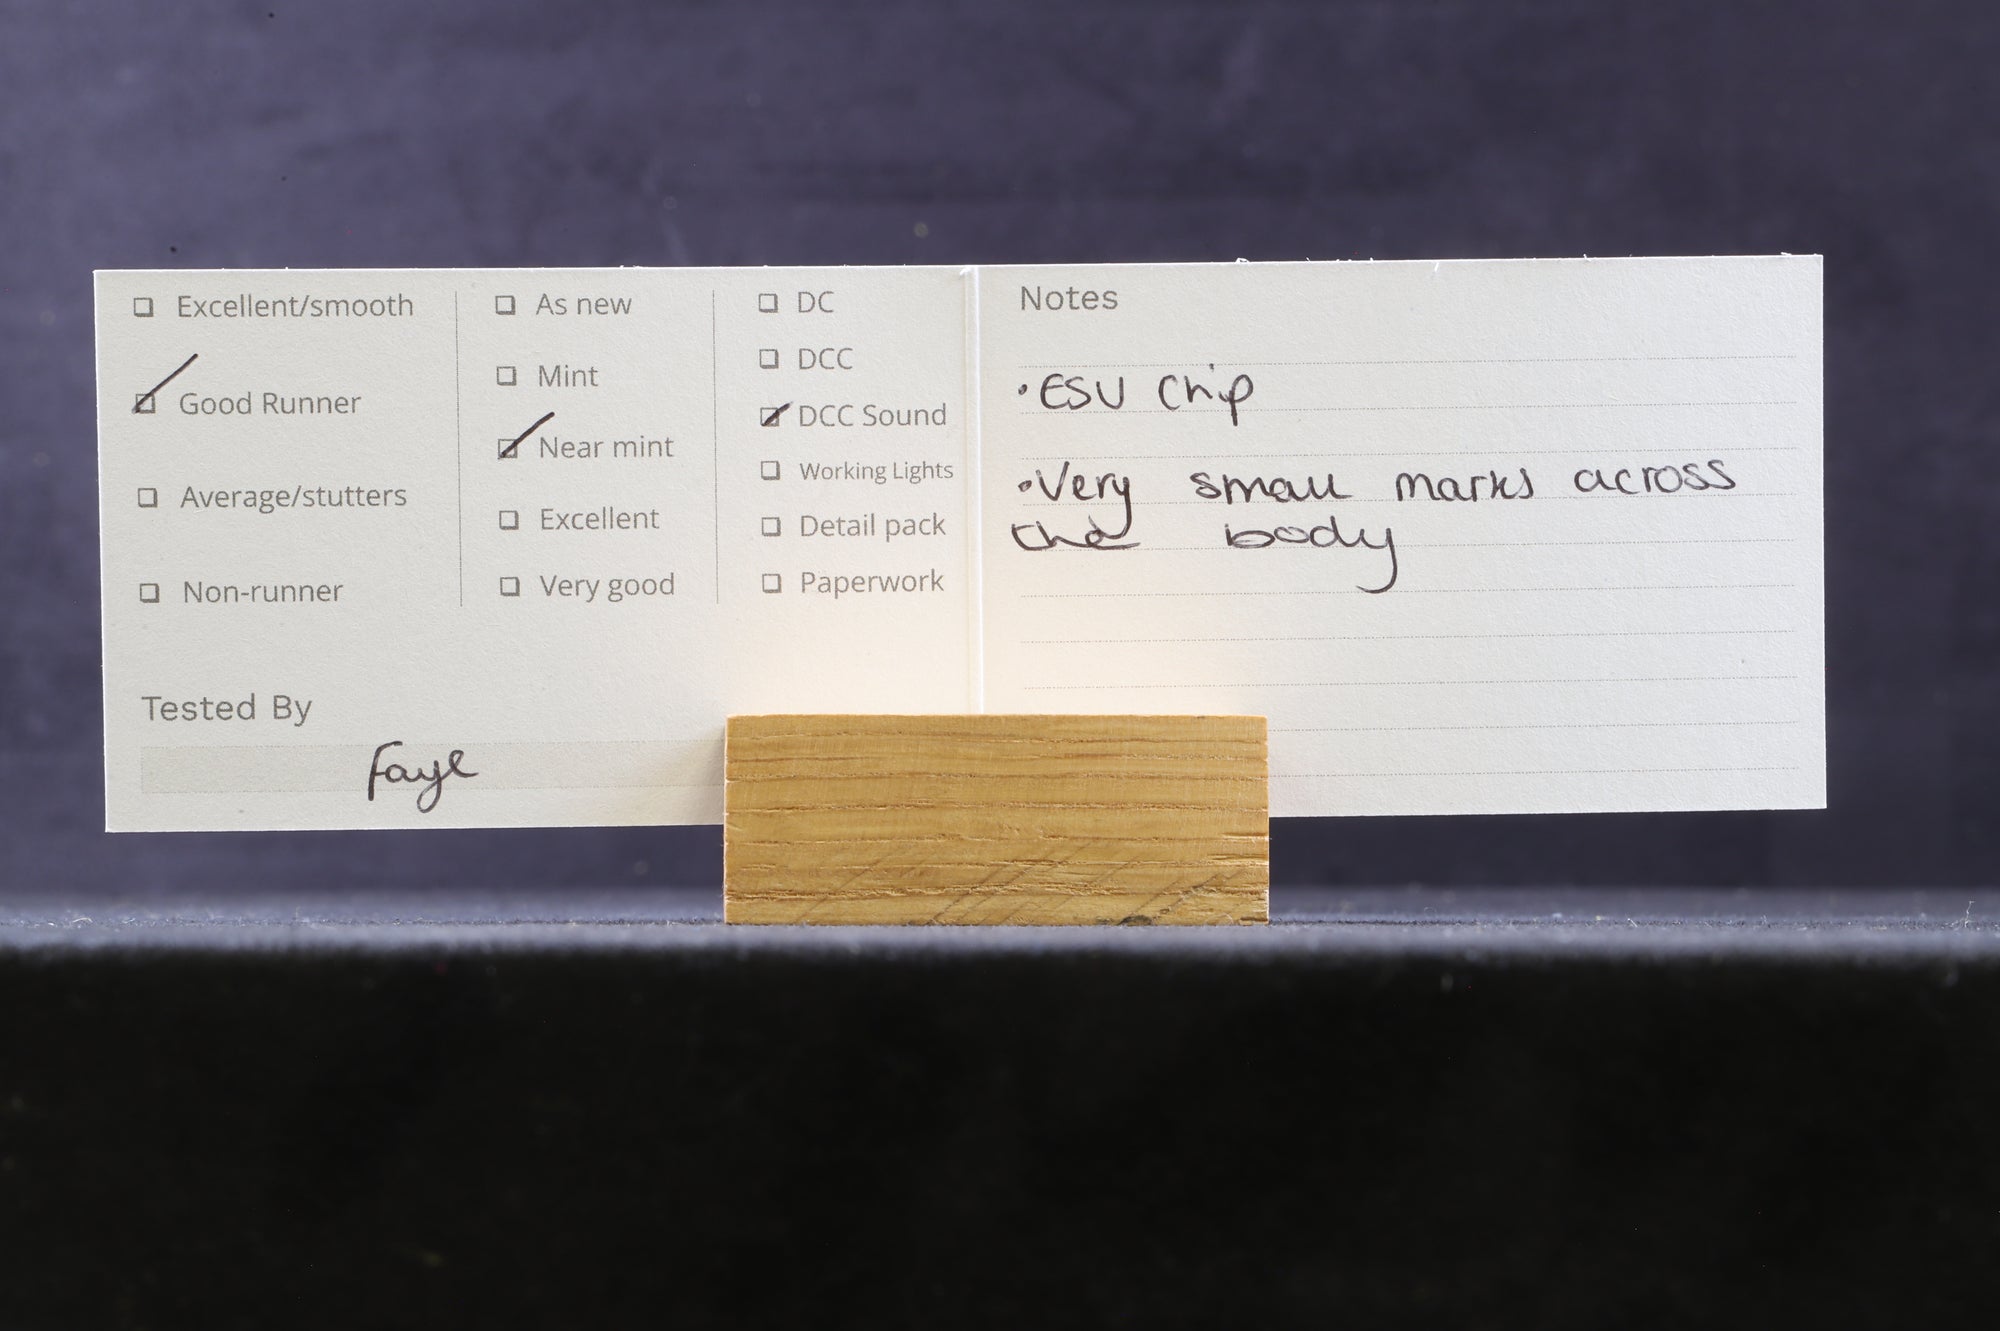 ☐ Excellent/smooth
☑ Good Runner
☐ Average/stutters
☐ Non-runner
☐ As new
☐ Mint
☑ Near mint
☐ Excellent
☐ Very good
☐ DC
☐ DCC
☑ DCC Sound
☐ Working Lights
☐ Detail pack
☐ Paperwork
Tested By
Faye
Notes
• ESU Chip
• Very small marks across
the body